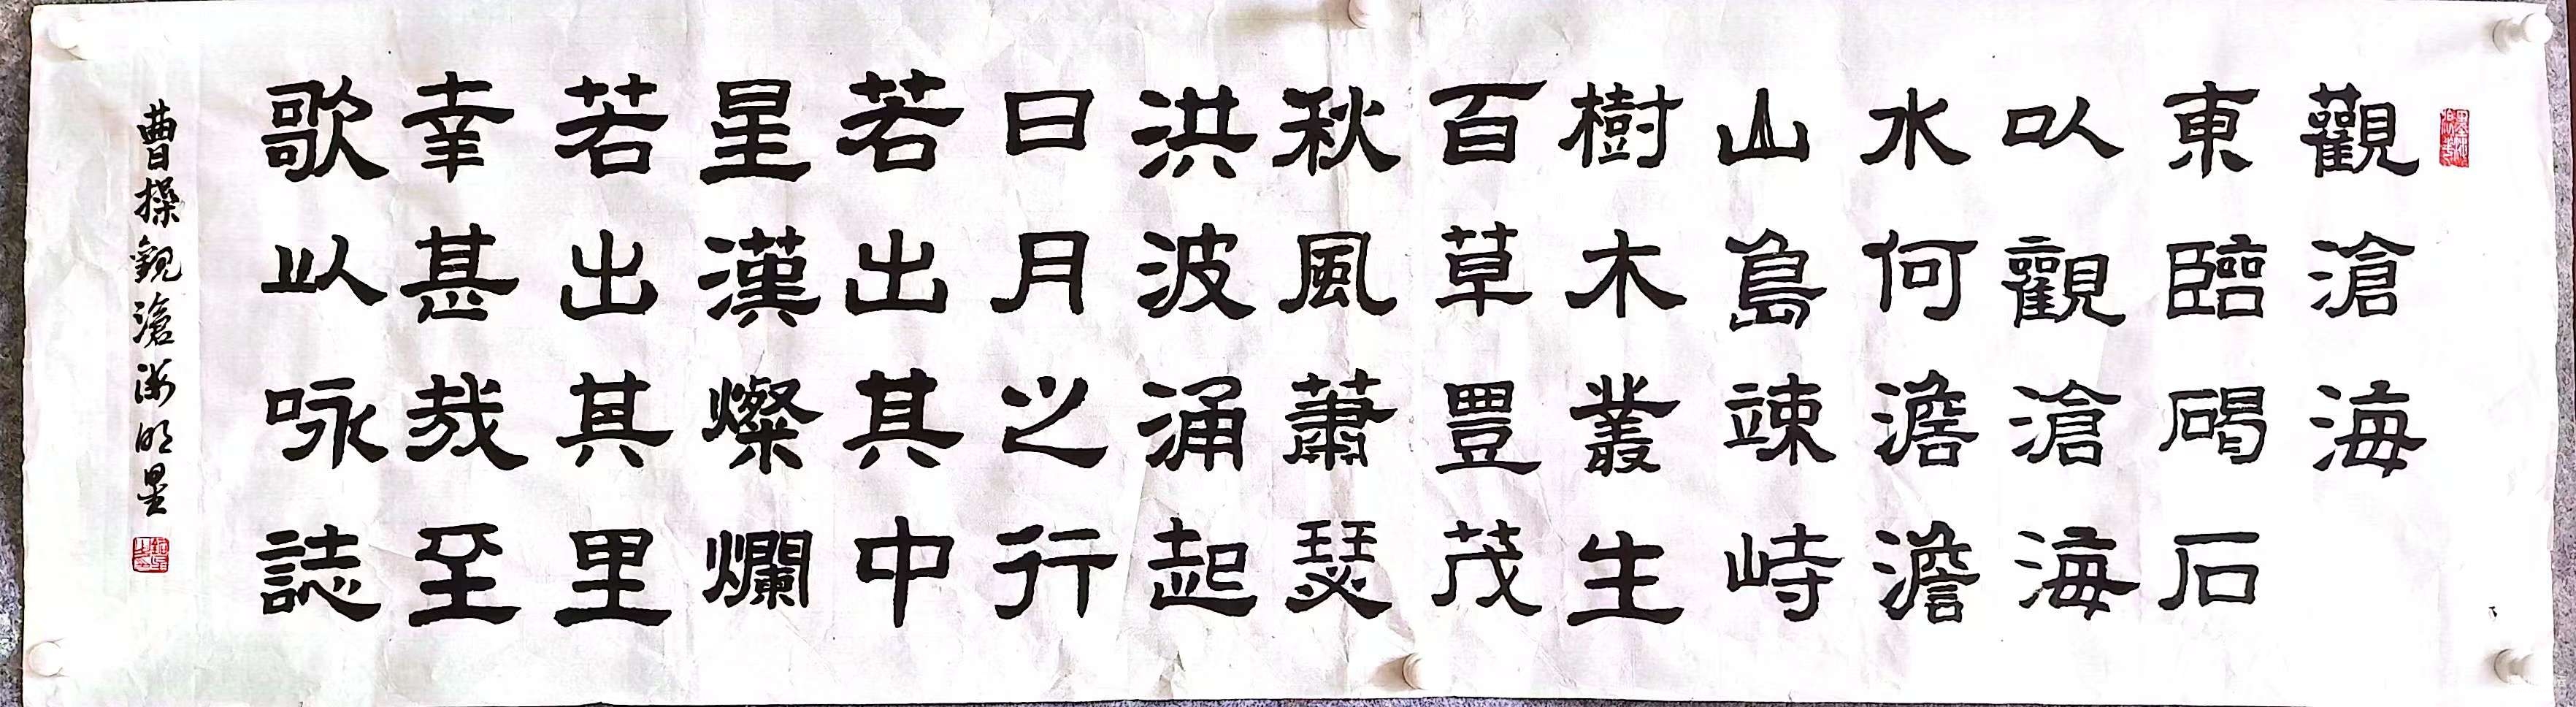 觀滄海
東臨碣石
以觀滄海
水何澹澹
山島竦峙
樹木叢生
百草豐茂
秋風蕭瑟
洪波涌起
日月之行
若出其中
星漢燦爛
若出其里
幸甚哉至
歌以咏誌
曹操觀滄海 明星